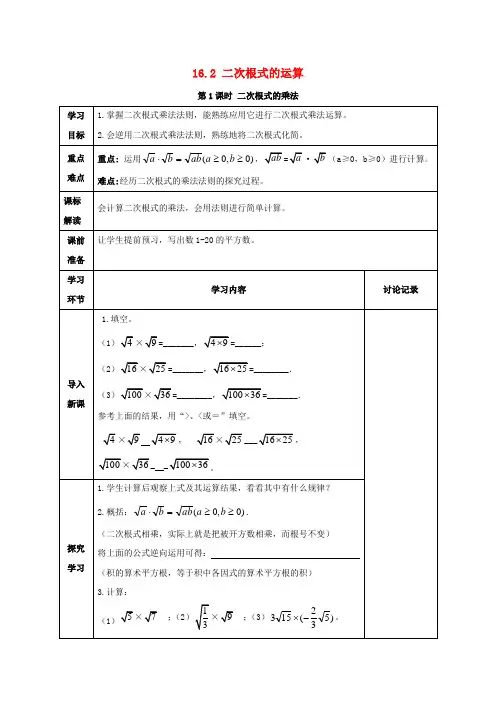 16.2 二次根式的运算
第1课时 二次根式的乘法
学习目标
1.掌握二次根式乘法法则，能熟练应用它进行二次根式乘法运算。
2.会逆用二次根式乘法法则，熟练地将二次根式化简。
重点难点
重点: 运用√a·√b=√ab(a≥0,b≥0)，√ab=√a·√b（a≥0，b≥0）进行计算。
难点:经历二次根式的乘法法则的探究过程。
课标解读
会计算二次根式的乘法，会用法则进行简单计算。
课前准备
让学生提前预习，写出数1-20的平方数。
学习环节
学习内容
讨论记录
导入新课
1.填空。
（1）√4×√9=_______，√4×9=______；
（2）√16×√25=_______，√16×25=________．
（3）√100×√36=________，√100×36=_______．
参考上面的结果，用“>、<或＝”填空。
√4×√9 __√4×9， √16×√25___√16×25，
√100×√36_ _√100×36。
探究学习
1.学生计算后观察上式及其运算结果，看看其中有什么规律？
2.概括：√a·√b=√ab(a≥0,b≥0)．
（二次根式相乘，实际上就是把被开方数相乘，而根号不变）
将上面的公式逆向运用可得：
（积的算术平方根，等于积中各因式的算术平方根的积）
3.计算：
（1）√5×√7 ；（2）√1/3×√9 ；（3）3√15×(-2/3√5)。